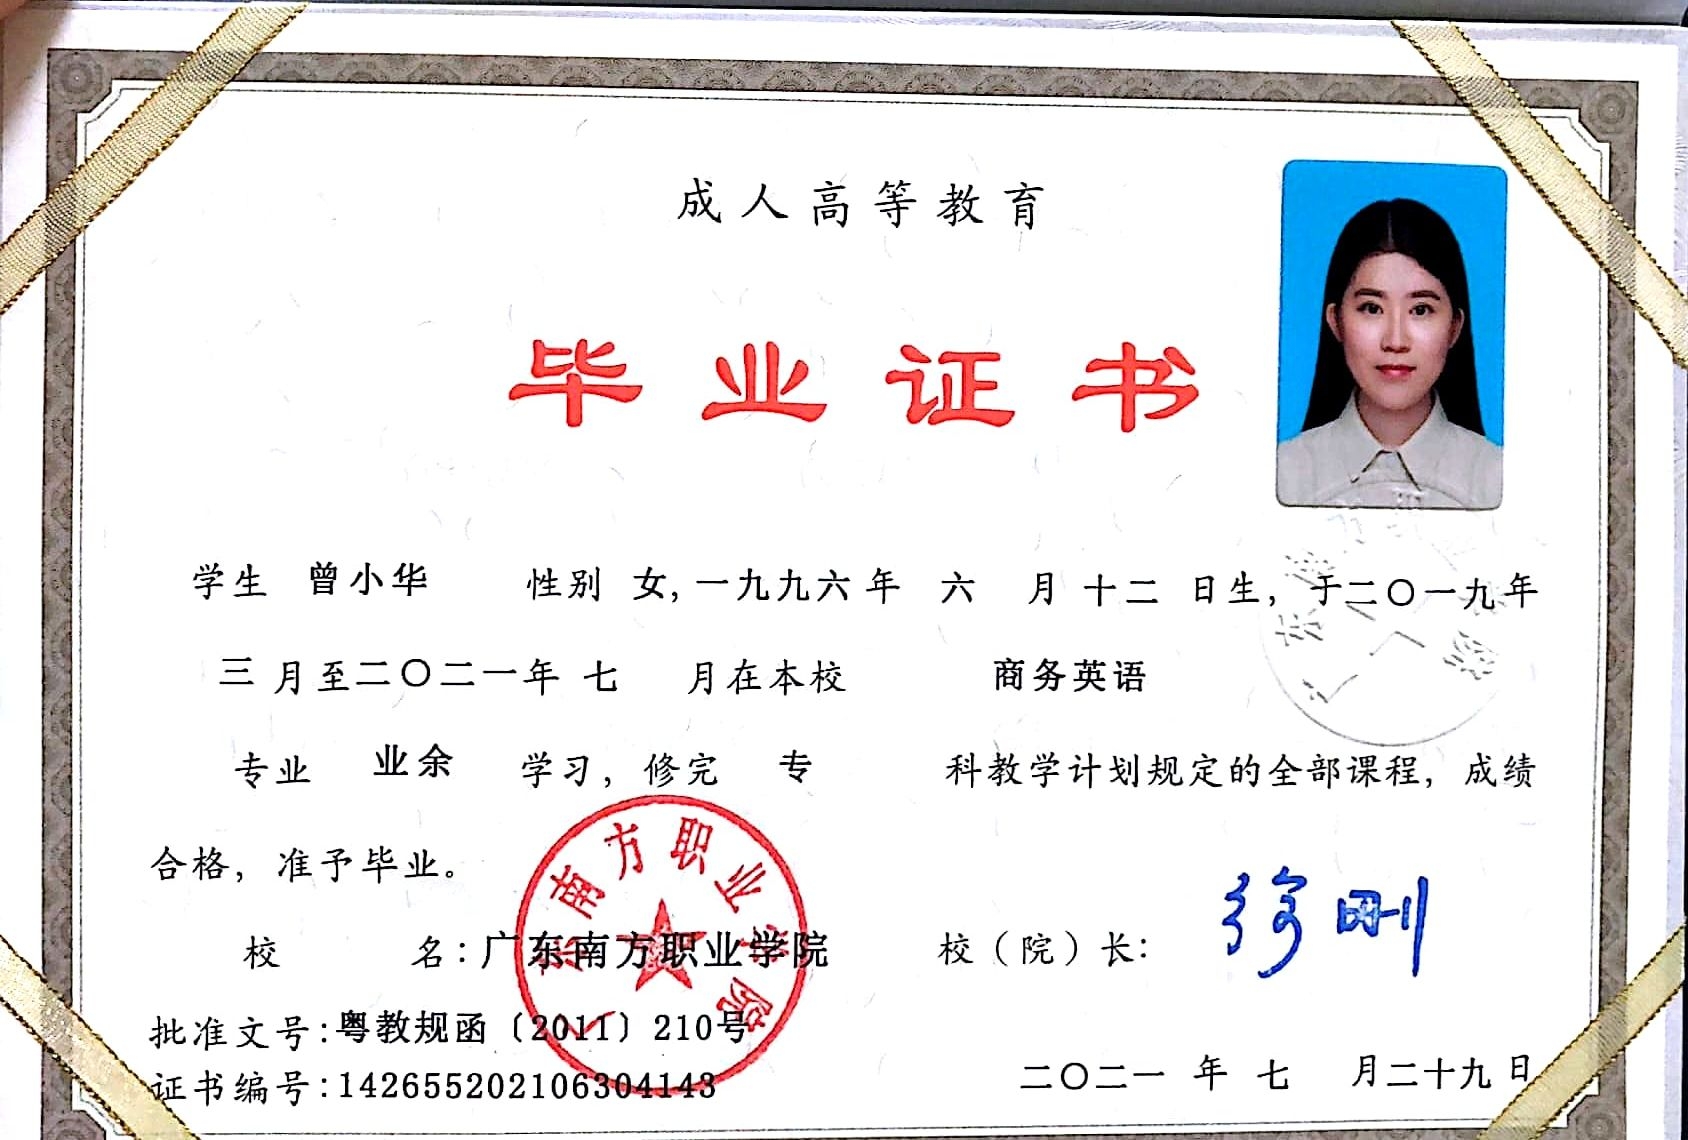 成人高等教育
毕业证书
学生 曾小华 性别 女，一九九六年 六 月 十二 日生，于二〇一九年
三 月至二〇二一年 七 月在本校 商务英语
专业 业余 学习，修完 专 科教学计划规定的全部课程，成绩
合格，准予毕业。
校 名：广东南方职业学院 校（院）长：徐刚
批准文号：粤教规函〔2011〕210号
证书编号：142655202106304143
二〇二一 年 七 月二十九日
广东南方职业学院